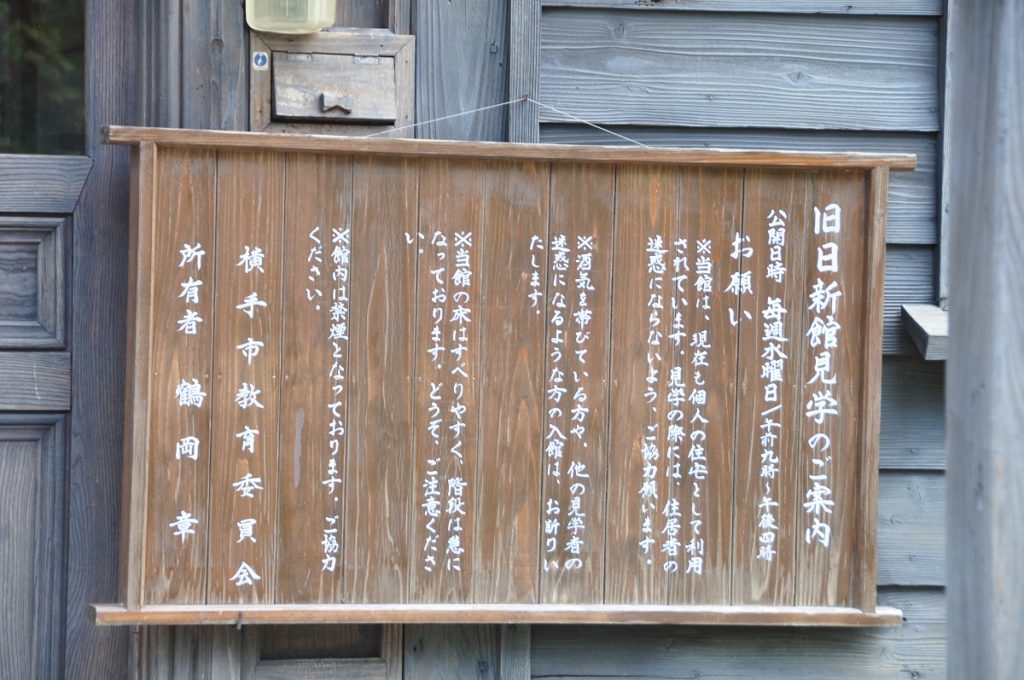 旧日新館見学のご案内
公開日時 毎週水曜日/午前九時〜午後四時
お願い
※当館は、現在も個人の住宅として利用
されています。見学の際には、住居者の
迷惑にならないよう、ご協力願います。
※酒気を帯びている方や、他の見学者の
迷惑になるような方の入館は、お断りい
たします。
※当館の床はすべりやすく、階段は急に
なっております。どうぞ、ご注意くださ
い。
※館内は禁煙となっております。ご協力
ください。
横手市教育委員会
所有者 鶴岡 章